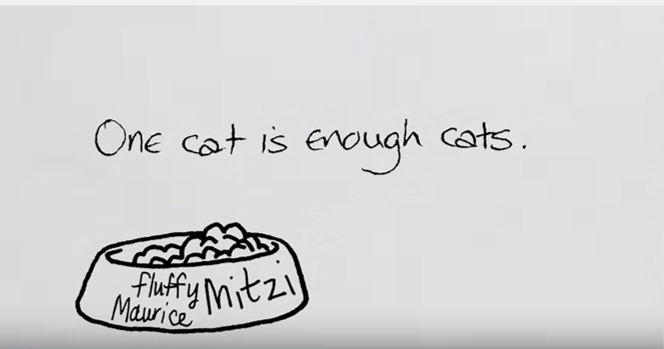 One cat is enough cats.
fluffy Mitzi
Maurice